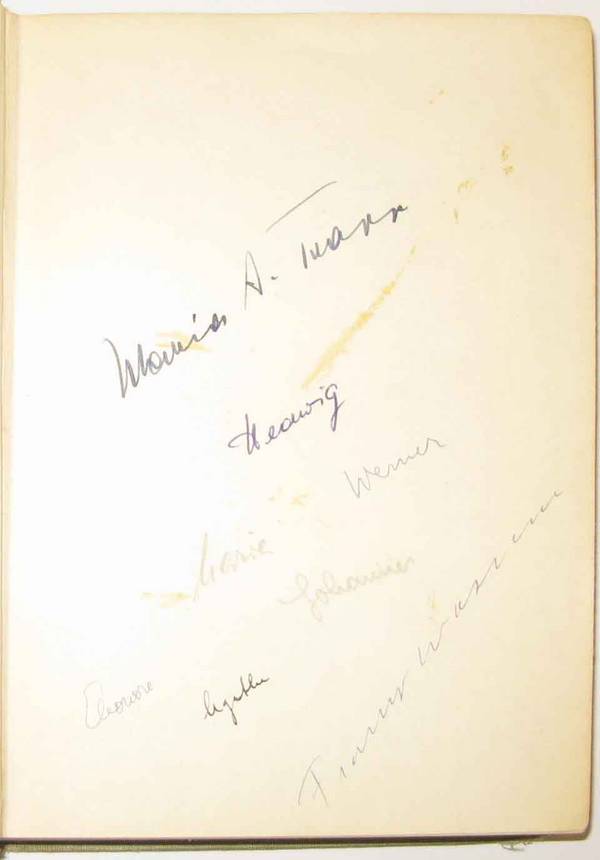 Maria A. Trapp
Hedwig
Werner
Maria
Johannes
Eleonore
Agathe
Franz Wasner